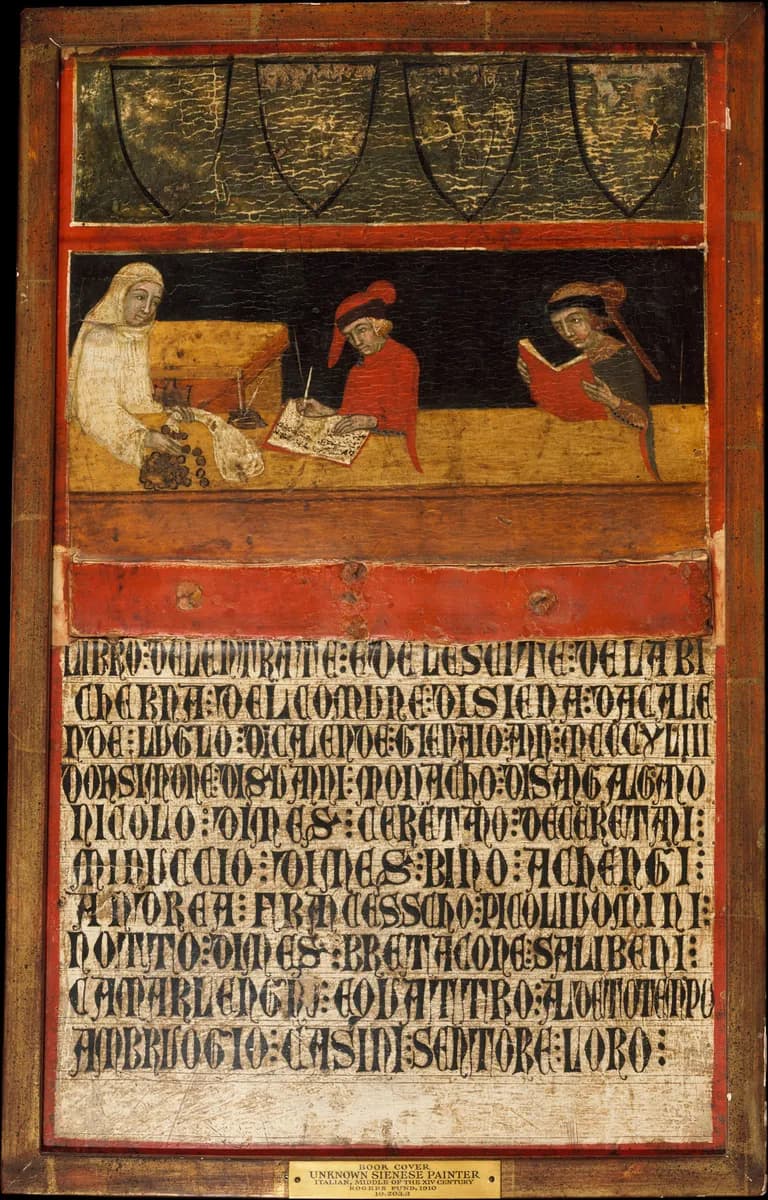 LIBRO:DELENTRATE:EDELESCITE:DELABI
CHERNA:DELCOMUNE:DISIENA:DACALE
NDE:LUGLO:DICALENDE:GIENAIO:ANN:MCCCXLIII
DONSIMONE:DISGVANNI:MONACHO:DISANGALGANO
NICOLO:DIMES:CERETANO:DECERETANI:
MINUCCIO:DIMES:BINO:ACHENGI:
ANDREA:FRANCESSCHO:PICOLUOMINI:
NOTTO:DIMES:BRETACONE:SALIBENI:
CAMARLENGHI:EQUATTRO:ALDETOTENPO
AMBRUOGIO:CASINI:SENTORE:LORO:
BOOK COVER
UNKNOWN SIENESE PAINTER
ITALIAN, MIDDLE OF THE XIV CENTURY
ROGERS FUND, 1910
10.203.3